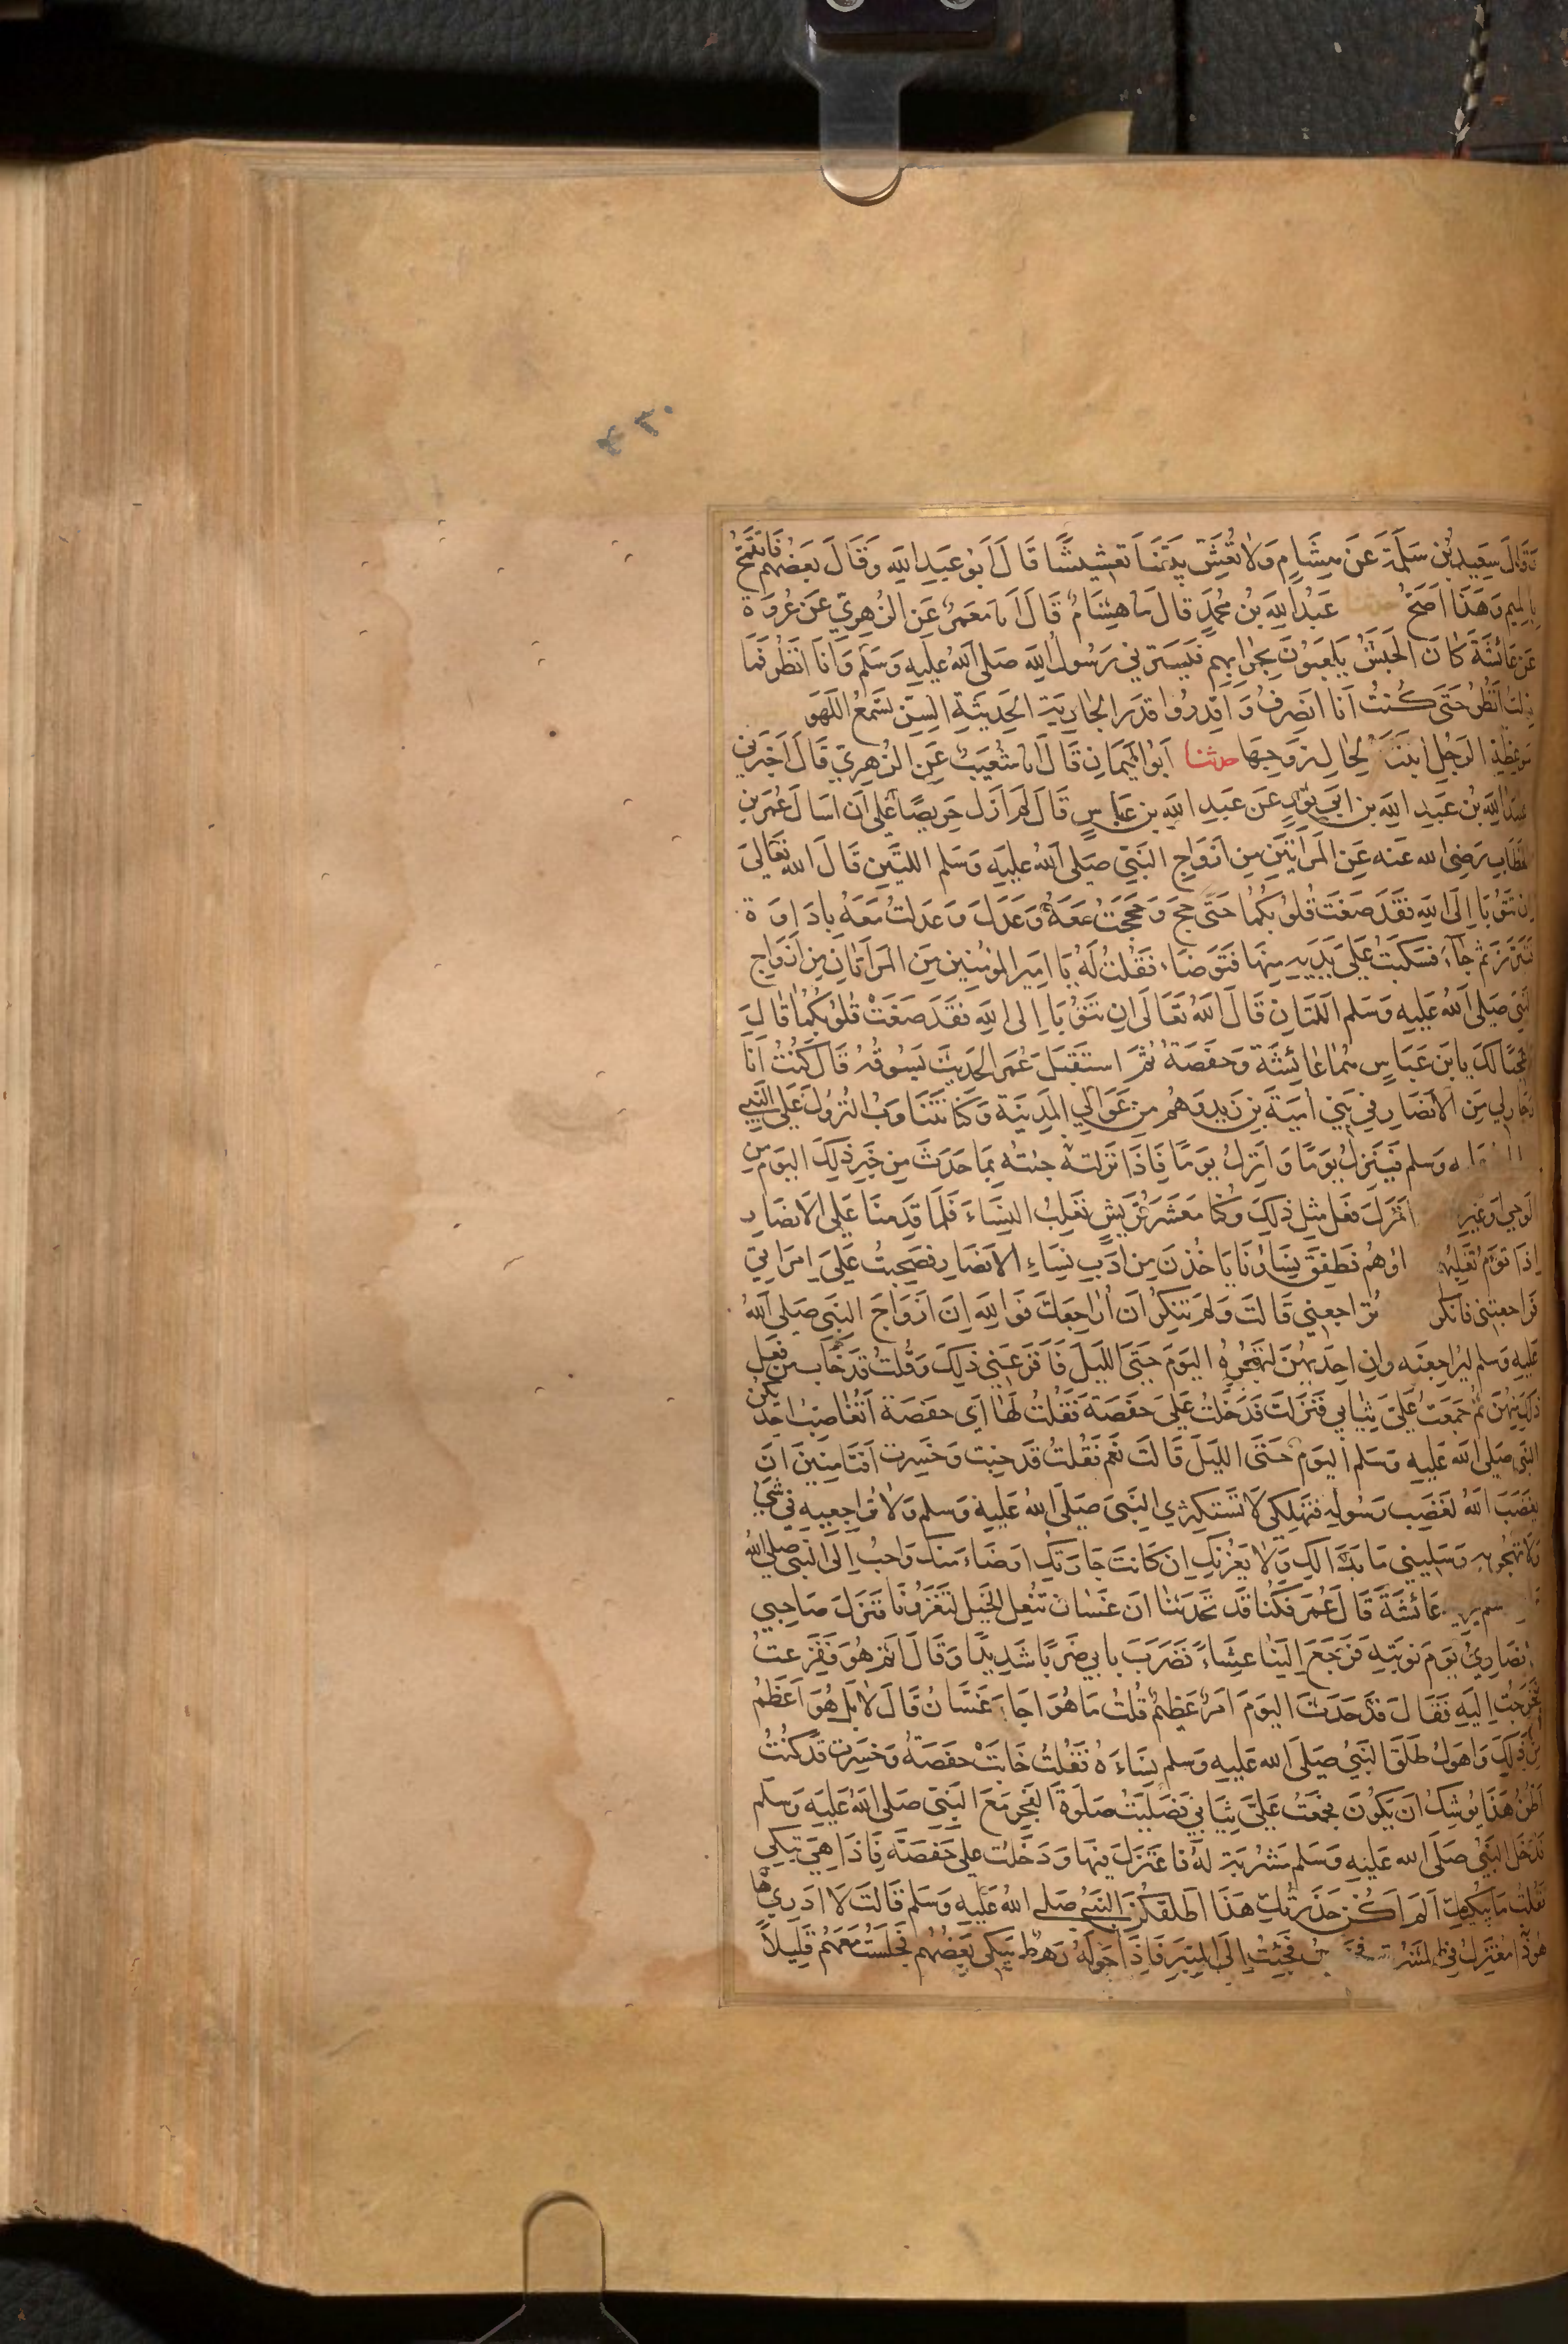 وَقَالَ سَعِيدُ بْنُ سَلَمَةَ عَنْ هِشَامٍ وَلَا تُعَشِّشْ بَيْتَنَا تَعْشِيشًا قَالَ اَبُو عَبْدِ اللهِ وَقَالَ بَعْضُهُمْ فَاَتَقَمَّحُ
بِالْمِيمِ وَهَذَا اَصَحُّ حدثنا عَبْدُ اللهِ بْنُ مُحَمَّدٍ قَالَ ثنا هِشَامٌ قَالَ اَنا مَعْمَرٌ عَنِ الزُّهْرِيِّ عَنْ عُرْوَةَ
عَنْ عَائِشَةَ كَانَ الْحَبَشُ يَلْعَبُونَ بِحِرَابِهِمْ فَيَسْتُرُنِي رَسُولُ اللهِ صَلَّى اللهُ عَلَيْهِ وَسَلَّمَ وَاَنَا اَنْظُرُ فَمَا
زِلْتُ اَنْظُرُ حَتَّى كُنْتُ اَنَا اَنْصَرِفُ وَاَقْدِرُوا قَدْرَ الْجَارِيَةِ الْحَدِيثَةِ السِّنِّ تَسْمَعُ اللَّهْوَ
مَوْعِظَةِ الرَّجُلِ ابْنَتَهُ لِحَالِ زَوْجِهَا حدثنا اَبُو الْيَمَانِ قَالَ اَنا شُعَيْبٌ عَنِ الزُّهْرِيِّ قَالَ اَخْبَرَنِي
عُبَيْدُ اللهِ بْنُ عَبْدِ اللهِ بْنِ اَبِي ثَوْرٍ عَنْ عَبْدِ اللهِ بْنِ عَبَّاسٍ قَالَ لَمْ اَزَلْ حَرِيصًا عَلَى اَنْ اَسْاَلَ عُمَرَ بْنَ
الْخَطَّابِ رَضِيَ اللهُ عَنْهُ عَنِ الْمَرْاَتَيْنِ مِنْ اَزْوَاجِ النَّبِيِّ صَلَّى اللهُ عَلَيْهِ وَسَلَّمَ اللَّتَيْنِ قَالَ اللهُ تَعَالَى
اِنْ تَتُوبَا اِلَى اللهِ فَقَدْ صَغَتْ قُلُوبُكُمَا حَتَّى حَجَّ وَحَجَجْتُ مَعَهُ وَعَدَلَ وَعَدَلْتُ مَعَهُ بِاِدَاوَةٍ
فَتَبَرَّزَ ثُمَّ جَاءَ فَسَكَبْتُ عَلَى يَدَيْهِ مِنْهَا فَتَوَضَّاَ فَقُلْتُ لَهُ يَا اَمِيرَ الْمُؤْمِنِينَ مَنِ الْمَرْاَتَانِ مِنْ اَزْوَاجِ
النَّبِيِّ صَلَّى اللهُ عَلَيْهِ وَسَلَّمَ اللَّتَانِ قَالَ اللهُ تَعَالَى اِنْ تَتُوبَا اِلَى اللهِ فَقَدْ صَغَتْ قُلُوبُكُمَا قَالَ
عَجَبًا لَكَ يَا ابْنَ عَبَّاسٍ هُمَا عَائِشَةُ وَحَفْصَةُ ثُمَّ اسْتَقْبَلَ عُمَرُ الْحَدِيثَ يَسُوقُهُ قَالَ كُنْتُ اَنَا
وَجَارٌ لِي مِنَ الْاَنْصَارِ فِي بَنِي اُمَيَّةَ بْنِ زَيْدٍ وَهُمْ مِنْ عَوَالِي الْمَدِينَةِ وَكُنَّا نَتَنَاوَبُ النُّزُولَ عَلَى النَّبِيِّ
وَسَلَّمَ فَيَنْزِلُ يَوْمًا وَاَنْزِلُ يَوْمًا فَاِذَا نَزَلْتُ جِئْتُهُ بِمَا حَدَثَ مِنْ خَبَرِ ذَلِكَ الْيَوْمِ مِنَ
الْوَحْيِ اَوْ غَيْرِهِ نَزَلَ فَعَلَ مِثْلَ ذَلِكَ وَكُنَّا مَعْشَرَ قُرَيْشٍ نَغْلِبُ النِّسَاءَ فَلَمَّا قَدِمْنَا عَلَى الْاَنْصَارِ
اِذَا قَوْمٌ تَغْلِبُهُمْ فَطَفِقَ نِسَاؤُنَا يَاْخُذْنَ مِنْ اَدَبِ نِسَاءِ الْاَنْصَارِ فَصَخِبْتُ عَلَى امْرَاَتِي
فَرَاجَعَتْنِي فَاَنْكَرْ تُرَاجِعَنِي قَالَتْ وَلِمَ تُنْكِرُ اَنْ اُرَاجِعَكَ فَوَاللهِ اِنَّ اَزْوَاجَ النَّبِيِّ صَلَّى اللهُ
عَلَيْهِ وَسَلَّمَ لَيُرَاجِعْنَهُ وَاِنَّ اِحْدَيهُنَّ لَتَهْجُرُهُ الْيَوْمَ حَتَّى اللَّيْلَ فَاَفْزَعَنِي ذَلِكَ وَقُلْتُ قَدْ خَابَ مَنْ فَعَلَ
ذَلِكَ مِنْهُنَّ ثُمَّ جَمَعْتُ عَلَيَّ ثِيَابِي فَنَزَلْتُ فَدَخَلْتُ عَلَى حَفْصَةَ فَقُلْتُ لَهَا اَيْ حَفْصَةُ اَتُغَاضِبُ اِحْدَيكُنَّ
النَّبِيَّ صَلَّى اللهُ عَلَيْهِ وَسَلَّمَ الْيَوْمَ حَتَّى اللَّيْلَ قَالَتْ نَعَمْ فَقُلْتُ قَدْ خِبْتِ وَخَسِرْتِ اَفَتَاْمَنِينَ اَنْ
يَغْضَبَ اللهُ لِغَضَبِ رَسُولِهِ فَتَهْلِكِي لَا تَسْتَكْثِرِي النَّبِيَّ صَلَّى اللهُ عَلَيْهِ وَسَلَّمَ وَلَا تُرَاجِعِيهِ فِي شَيْءٍ
وَلَا تَهْجُرِيهِ وَسَلِينِي مَا بَدَا لَكِ وَلَا يَغُرَّنَّكِ اِنْ كَانَتْ جَارَتُكِ اَوْضَاَ مِنْكِ وَاَحَبَّ اِلَى النَّبِيِّ صَلَّى اللهُ
عَائِشَةَ قَالَ عُمَرُ فَكُنَّا قَدْ تَحَدَّثْنَا اَنَّ غَسَّانَ تُنْعِلُ الْخَيْلَ لِتَغْزُوَنَا فَنَزَلَ صَاحِبِي
الْاَنْصَارِيُّ يَوْمَ نَوْبَتِهِ فَرَجَعَ اِلَيْنَا عِشَاءً فَضَرَبَ بَابِي ضَرْبًا شَدِيدًا وَقَالَ اَثَمَّ هُوَ فَفَزِعْتُ
فَخَرَجْتُ اِلَيْهِ فَقَالَ قَدْ حَدَثَ الْيَوْمَ اَمْرٌ عَظِيمٌ قُلْتُ مَا هُوَ اَجَاءَ غَسَّانُ قَالَ لَا بَلْ هُوَ اَعْظَمُ
مِنْ ذَلِكَ وَاَهْوَلُ طَلَّقَ النَّبِيُّ صَلَّى اللهُ عَلَيْهِ وَسَلَّمَ نِسَاءَهُ فَقُلْتُ خَابَتْ حَفْصَةُ وَخَسِرَتْ قَدْ كُنْتُ
اَظُنُّ هَذَا يُوشِكُ اَنْ يَكُونَ فَجَمَعْتُ عَلَيَّ ثِيَابِي فَصَلَّيْتُ صَلَوةَ الْفَجْرِ مَعَ النَّبِيِّ صَلَّى اللهُ عَلَيْهِ وَسَلَّمَ
فَدَخَلَ النَّبِيُّ صَلَّى اللهُ عَلَيْهِ وَسَلَّمَ مَشْرُبَةً لَهُ فَاعْتَزَلَ فِيهَا وَدَخَلْتُ عَلَى حَفْصَةَ فَاِذَا هِيَ تَبْكِي
فَقُلْتُ مَا يُبْكِيكِ اَلَمْ اَكُنْ حَذَّرْتُكِ هَذَا اَطَلَّقَكُنَّ النَّبِيُّ صَلَّى اللهُ عَلَيْهِ وَسَلَّمَ قَالَتْ لَا اَدْرِي هَا
هُوَ ذَا مُعْتَزِلٌ فِي فَجِئْتُ اِلَى الْمِنْبَرِ فَاِذَا حَوْلَهُ رَهْطٌ يَبْكِي بَعْضُهُمْ فَجَلَسْتُ مَعَهُمْ قَلِيلًا